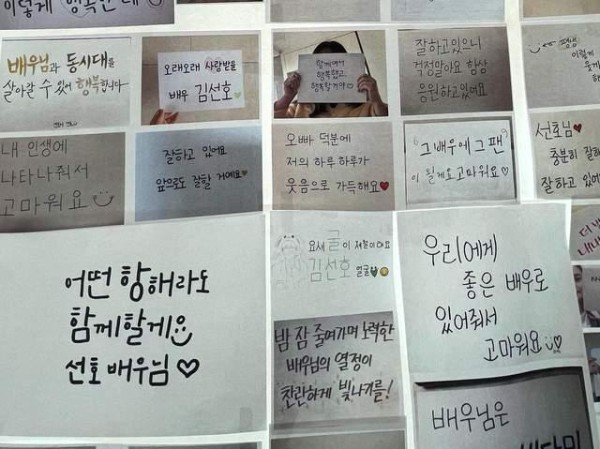 이렇게 행복한데
배우님과 동시대를
살아갈 수 있어 행복합니다
오래오래 사랑받을
배우 김선호♡
함께여서
행복했고
행복할거야♡
잘하고있으니
걱정말아요 항상
응원하고있어요
이렇게
내 인생에
나타나줘서
고마워요
잘하고 있어요
앞으로도 잘할 거예요♥
오빠 덕분에
저의 하루하루가
웃음으로 가득해요♥
"그 배우에 그 팬"
이 될게요 고마워요♡
선호님♥
충분히 잘하
잘하고 있어
어떤 항해라도
함께할게요
선호 배우님♡
요새 굴이 제철이래요
김선호 얼굴
밤 잠 줄여가며 노력한
배우님의 열정이
찬란하게 빛나기를!
우리에게
좋은 배우로
있어줘서
고마워요♡
배우님은